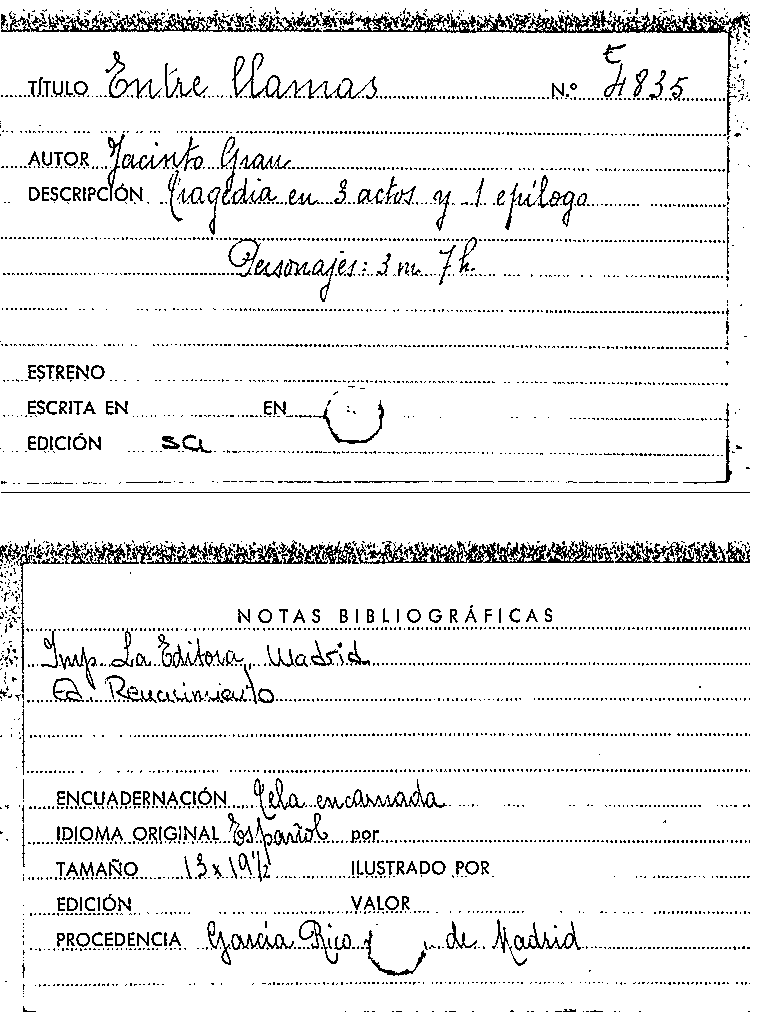 TÍTULO Entre llamas N.º 4835
t
AUTOR Jacinto Grau
DESCRIPCIÓN Tragedia en 3 actos y 1 epílogo
Personajes: 3 m 7 h.
ESTRENO
ESCRITA EN EN
EDICIÓN sa
NOTAS BIBLIOGRÁFICAS
Imp. La Editora, Madrid
Ed. Renacimiento
ENCUADERNACIÓN Tela encarnada
IDIOMA ORIGINAL Español por
TAMAÑO 13 x 19½ ILUSTRADO POR
EDICIÓN VALOR
PROCEDENCIA García Rico de Madrid